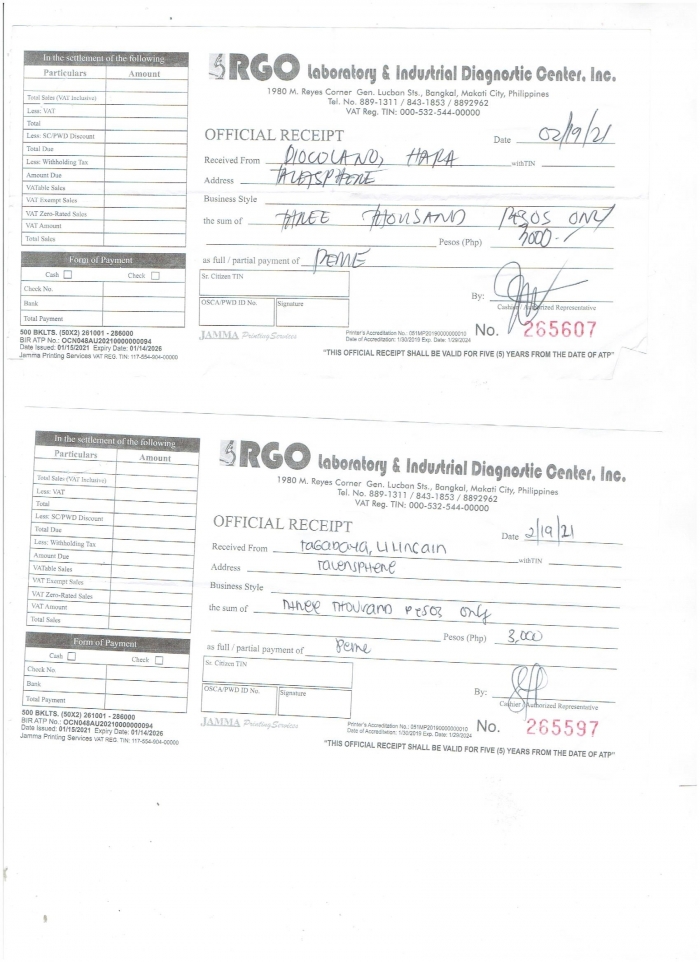 In the settlement of the following
Particulars Amount
Total Sales (VAT Inclusive)
Less: VAT
Total
Less: SC/PWD Discount
Total Due
Less: Withholding Tax
Amount Due
VATable Sales
VAT Exempt Sales
VAT Zero-Rated Sales
VAT Amount
Total Sales
Form of Payment
Cash Check
Check No.
Bank
Total Payment
500 BKLTS. (50X2) 261001 - 286000
BIR ATP No.: OCN048AU20210000000094
Date Issued: 01/15/2021 Expiry Date: 01/14/2026
Jamma Printing Services VAT REG. TIN: 117-554-604-00000
RGO Laboratory & Industrial Diagnostic Center, Inc.
1980 M. Reyes Corner Gen. Lucban Sts., Bangkal, Makati City, Philippines
Tel. No. 889-1311 / 843-1853 / 8892962
VAT Reg. TIN: 000-532-544-00000
OFFICIAL RECEIPT Date 02/19/21
Received From DIOCOLANO, HARA with TIN
Address
Business Style
the sum of THREE THOUSAND PESOS ONLY
Pesos (Php) 3000.-
as full / partial payment of PEME
Sr. Citizen TIN
OSCA/PWD ID No. Signature
By:
Cashier / Authorized Representative
JAMMA Printing Services
Printer's Accreditation No.: 051MP20190000000010
Date of Accreditation: 1/30/2019 Exp. Date: 1/29/2024
No. 265607
"THIS OFFICIAL RECEIPT SHALL BE VALID FOR FIVE (5) YEARS FROM THE DATE OF ATP"
In the settlement of the following
Particulars Amount
Total Sales (VAT Inclusive)
Less: VAT
Total
Less: SC/PWD Discount
Total Due
Less: Withholding Tax
Amount Due
VATable Sales
VAT Exempt Sales
VAT Zero-Rated Sales
VAT Amount
Total Sales
Form of Payment
Cash Check
Check No.
Bank
Total Payment
500 BKLTS. (50X2) 261001 - 286000
BIR ATP No.: OCN048AU20210000000094
Date Issued: 01/15/2021 Expiry Date: 01/14/2026
Jamma Printing Services VAT REG. TIN: 117-554-604-00000
RGO Laboratory & Industrial Diagnostic Center, Inc.
1980 M. Reyes Corner Gen. Lucban Sts., Bangkal, Makati City, Philippines
Tel. No. 889-1311 / 843-1853 / 8892962
VAT Reg. TIN: 000-532-544-00000
OFFICIAL RECEIPT Date 2/19/21
Received From with TIN
Address Talensphere
Business Style
the sum of Three Thousand Pesos Only
Pesos (Php) 3,000
as full / partial payment of Peme
Sr. Citizen TIN
OSCA/PWD ID No. Signature
By:
Cashier / Authorized Representative
JAMMA Printing Services
Printer's Accreditation No.: 051MP20190000000010
Date of Accreditation: 1/30/2019 Exp. Date: 1/29/2024
No. 265597
"THIS OFFICIAL RECEIPT SHALL BE VALID FOR FIVE (5) YEARS FROM THE DATE OF ATP"